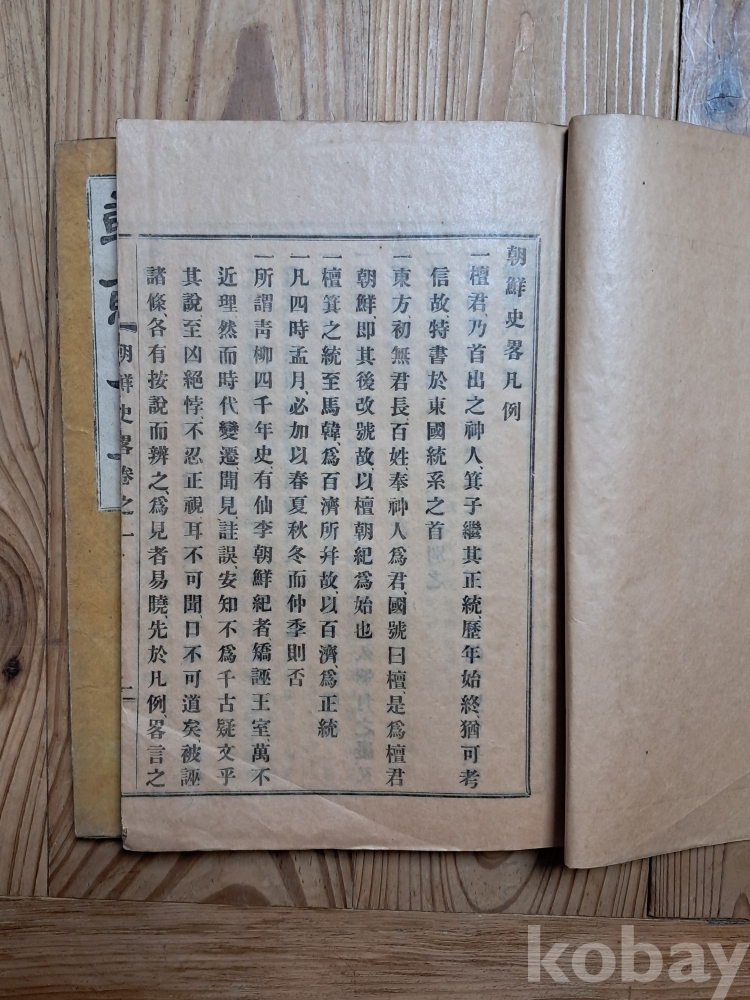 朝鮮史畧凡例
一檀君、乃首出之神人、箕子繼其正統、歷年始終、猶可考
信故、特書於東國統系之首
一東方、初無君長、百姓、奉神人爲君、國號曰檀、是爲檀君
朝鮮、即其後改號故、以檀朝紀爲始也
一檀箕之統、至馬韓、爲百濟所幷故、以百濟、爲正統
一凡四時孟月、必加以春夏秋冬而仲季則否
一所謂靑柳四千年史有仙李朝鮮紀者矯誣王室、萬不
近理然而時代變遷、聞見、註誤、安知不爲千古疑文乎
其說、至凶絕悖、不忍正視耳不可聞、口不可道矣、被誣
諸條各有按說而辨之、爲見者易曉、先於凡例、畧言之
朝鮮史畧卷之一
kobay